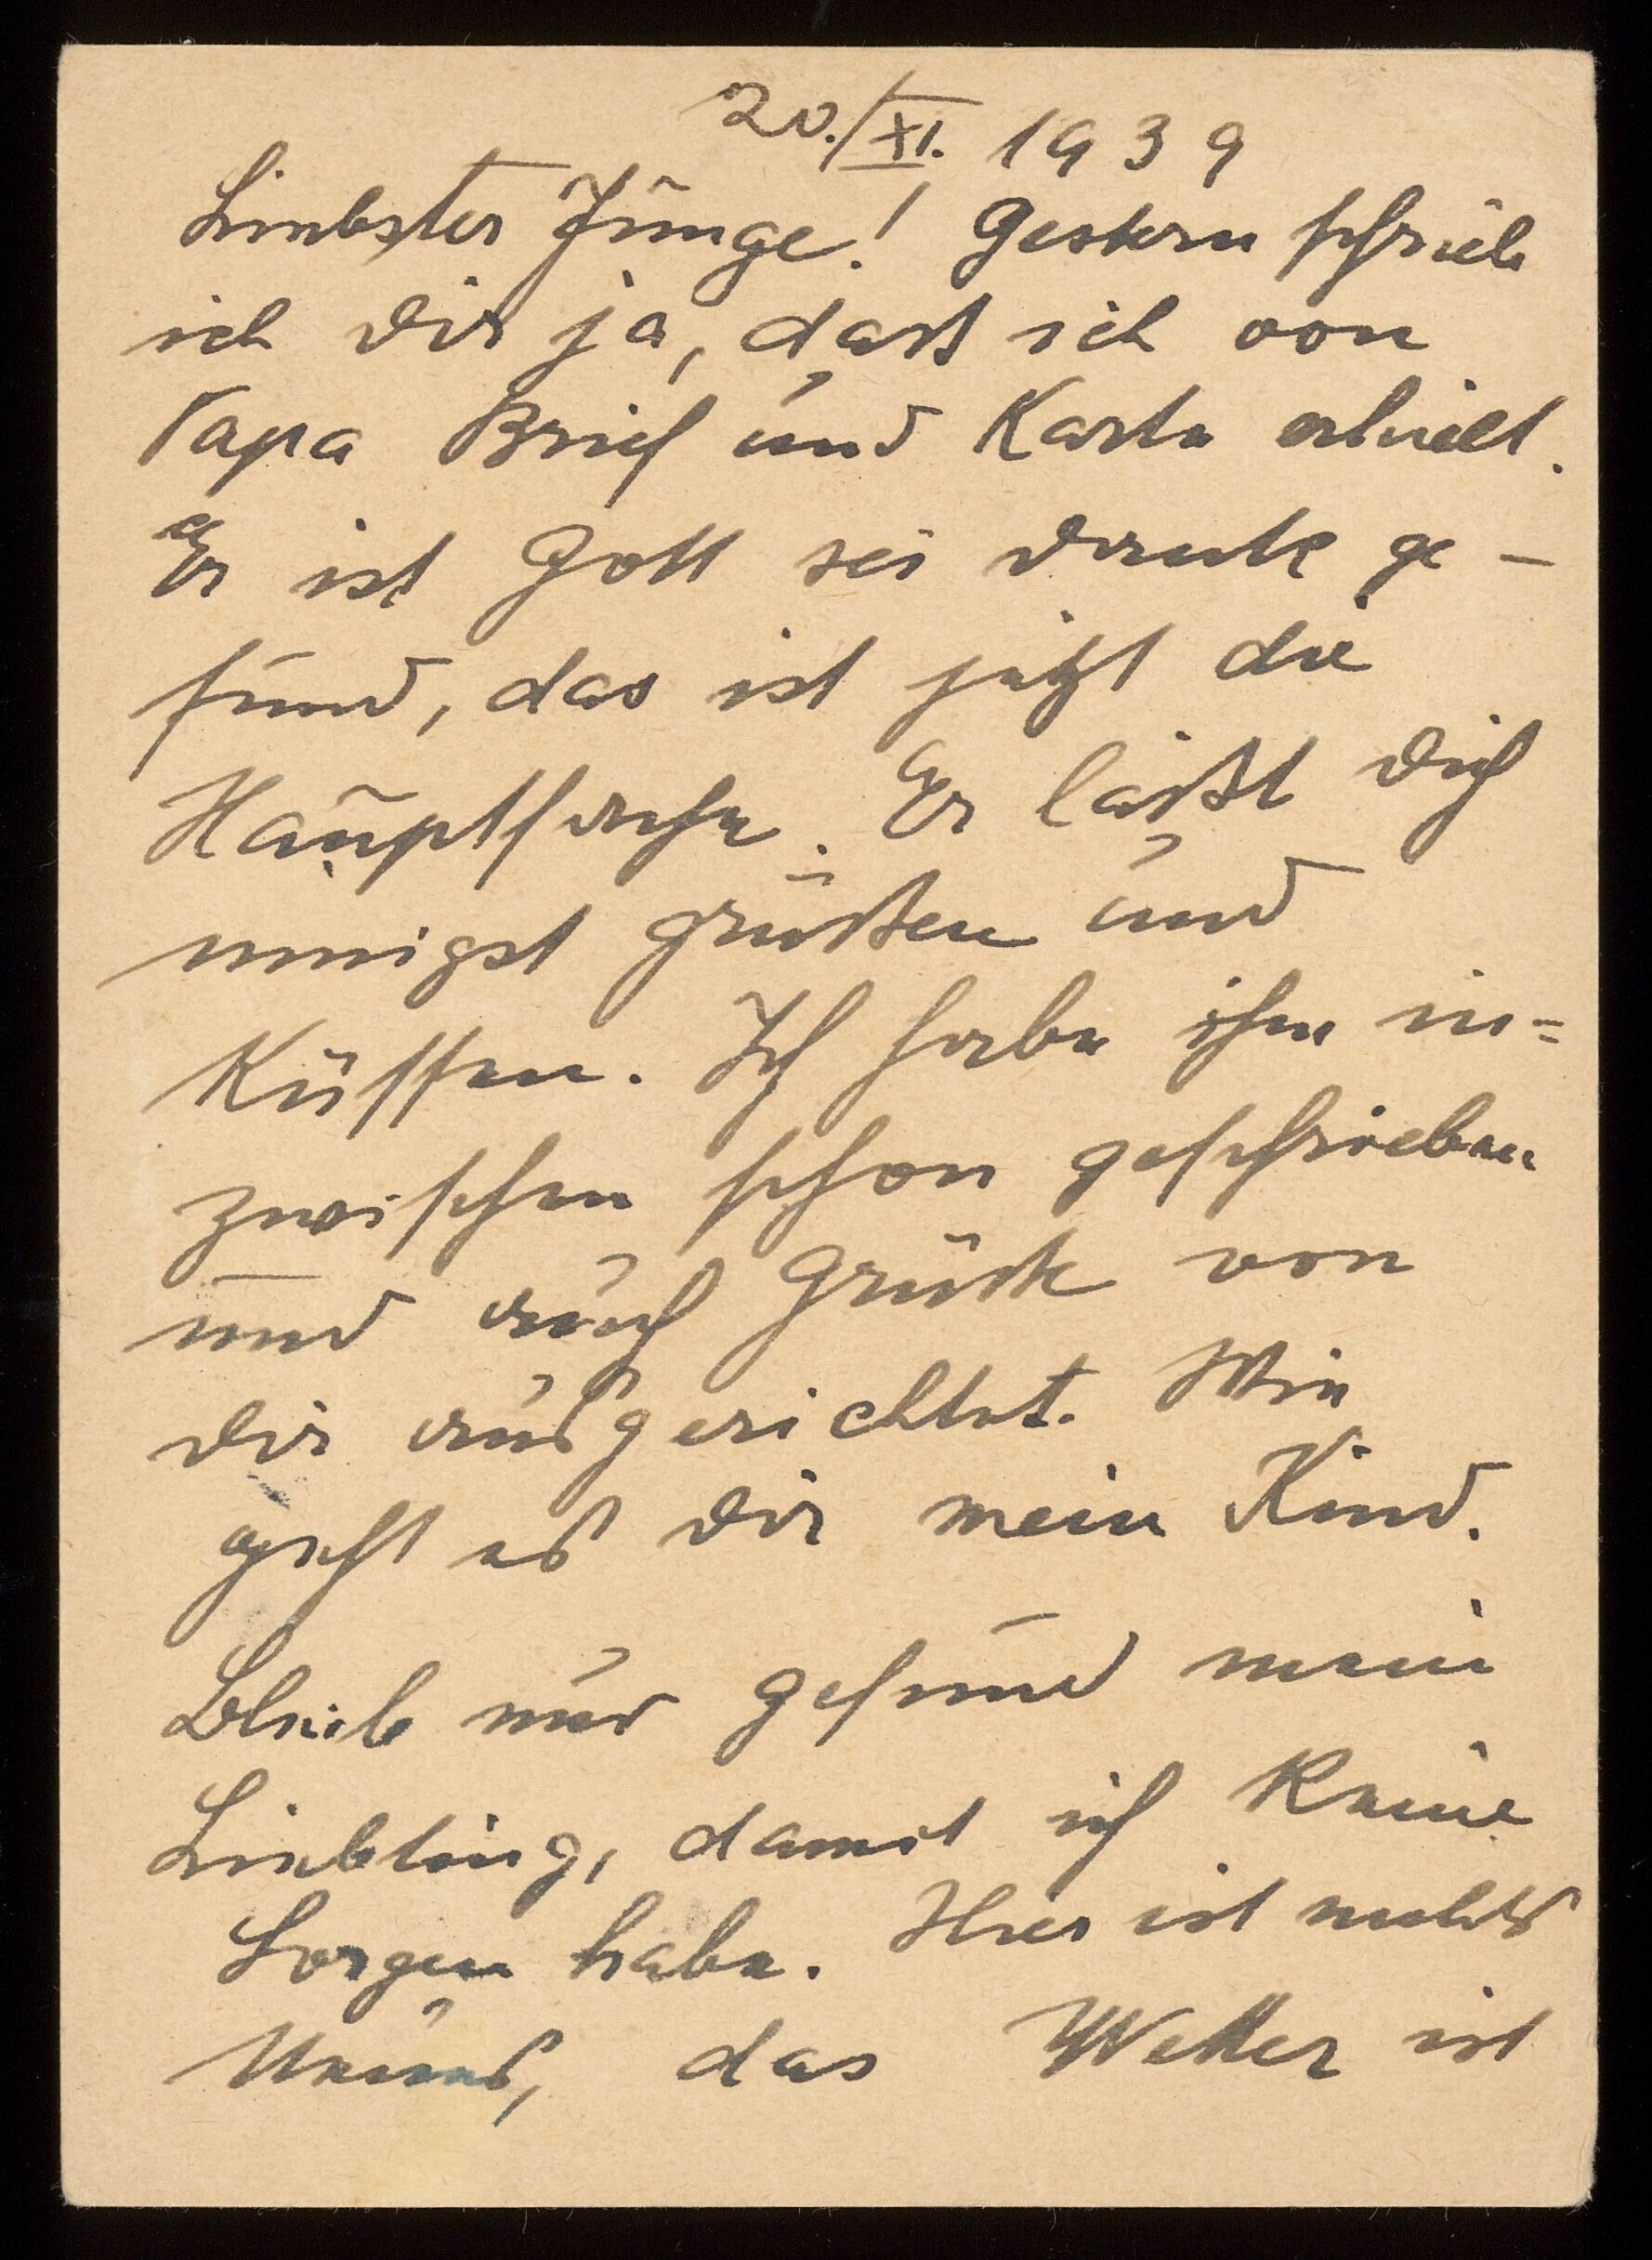 20./XI. 1939
Liebster Junge! Gestern schrieb
ich Dir ja, daß ich von
Papa Brief und Karte erhielt.
Er ist Gott sei dank ge-
sund, das ist jetzt die
Hauptsache. Er läßt Dich
innigst grüßen und
küssen. Ich habe ihm in=
zwischen schon geschrieben
und auch Grüße von
Dir ausgerichtet. Wie
geht es Dir mein Kind.
Bleib nur gesund mein
Liebling, damit ich keine
Sorgen habe. Hier ist nichts
Neues, das Wetter ist